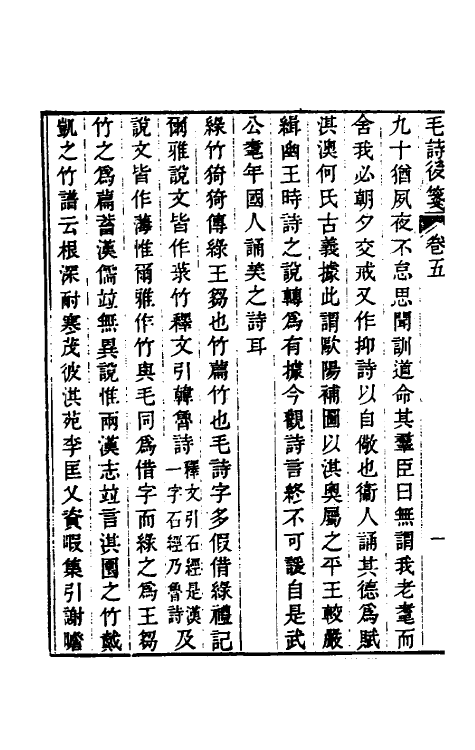 毛詩後箋 卷五 一
九十猶夙夜不怠思聞訓道命其羣臣曰無謂我老耄而
舍我必朝夕交戒又作抑詩以自儆也衞人誦其德爲賦
淇澳何氏古義據此謂歐陽補圖以淇奥屬之平王較嚴
緝幽王時詩之說轉爲有據今觀詩言終不可諼自是武
公耄年國人誦美之詩耳
綠竹猗猗傳綠王芻也竹萹竹也毛詩字多假借綠禮記
爾雅說文皆作菉竹釋文引韓魯詩釋文引石經是漢一字石經乃魯詩及
說文皆作薄惟爾雅作竹與毛同爲借字而綠之爲王芻
竹之爲萹蓄漢儒竝無異說惟兩漢志竝言淇園之竹戴
凱之竹譜云根深耐寒茂彼淇苑李匡乂資暇集引謝瞻